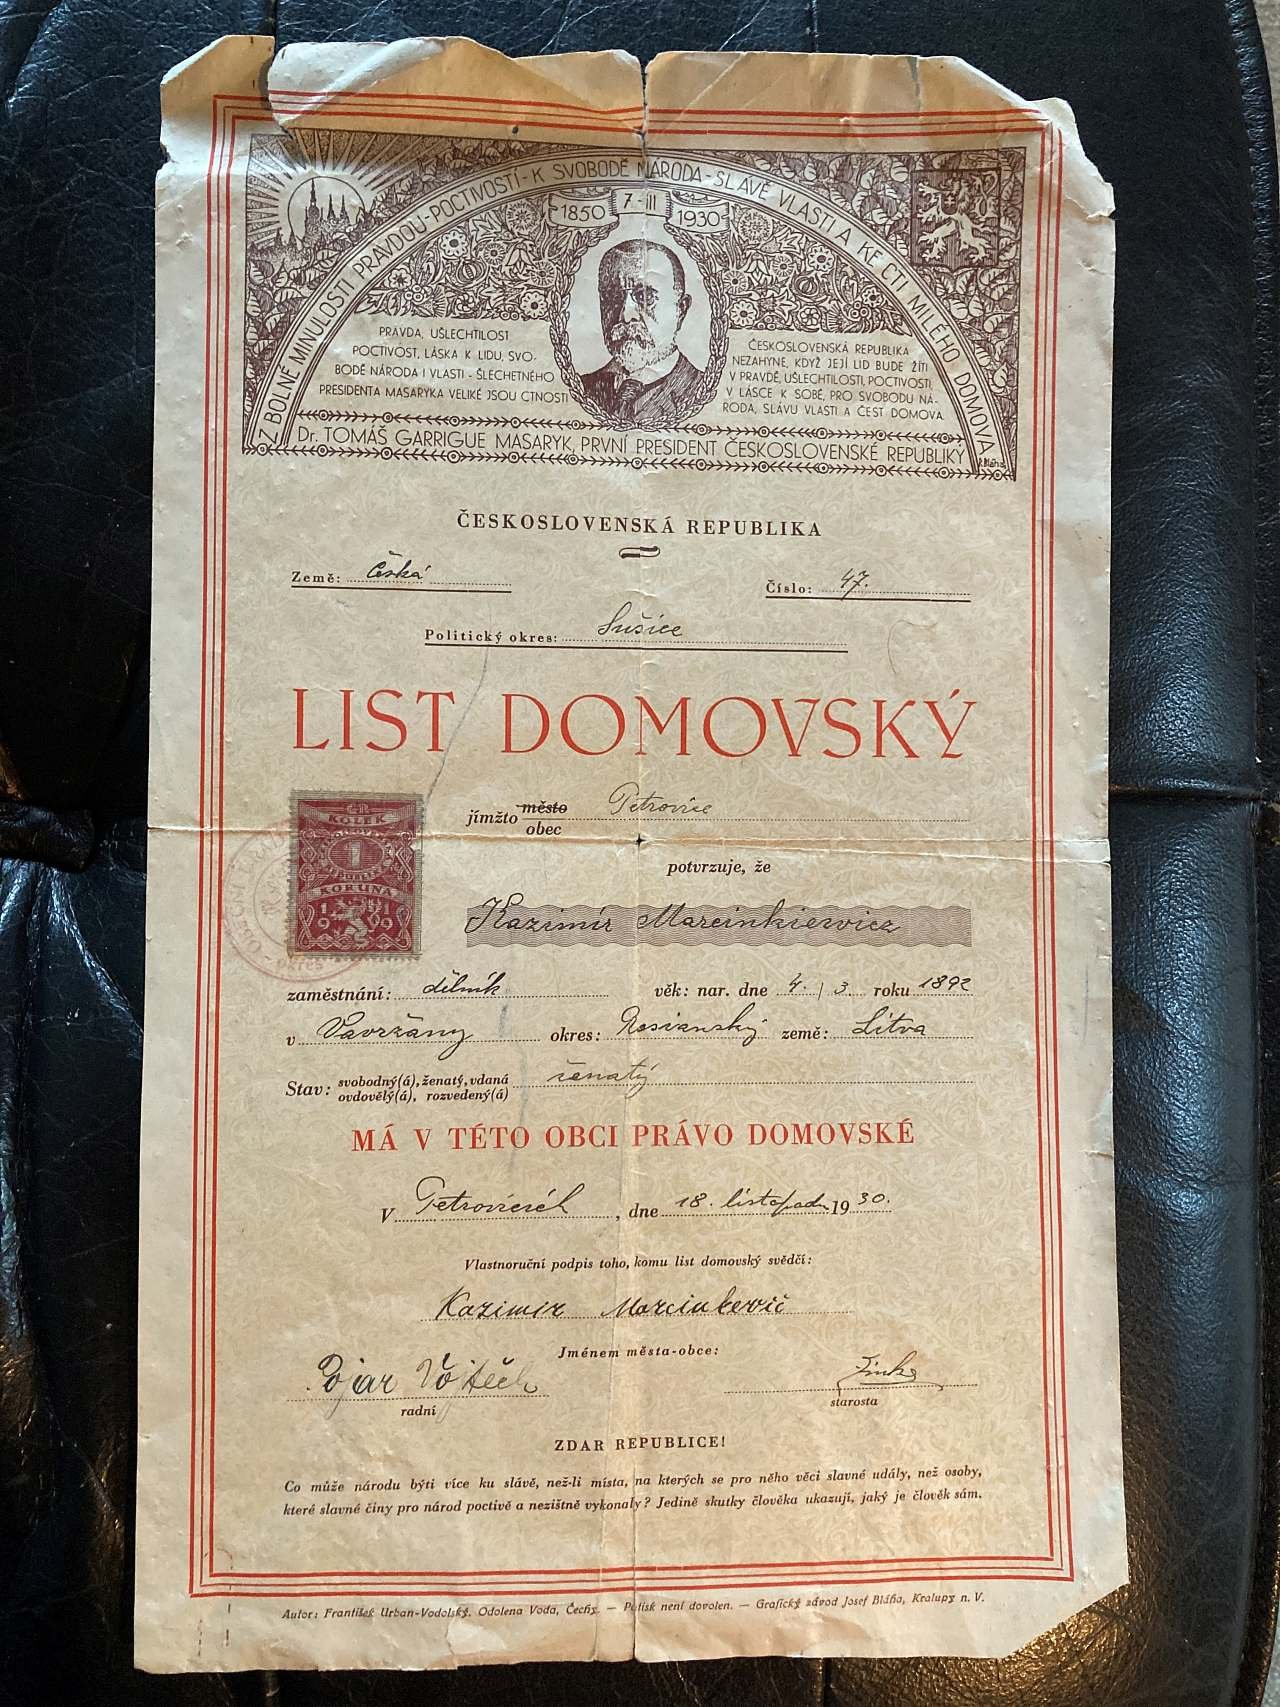 Z BOLNÉ MINULOSTI PRAVDOU - POCTIVOSTÍ - K SVOBODĚ NÁRODA - SLÁVĚ VLASTI A KE CTI MILÉHO DOMOVA
1850 7-III 1930
PRAVDA, UŠLECHTILOST
POCTIVOST, LÁSKA K LIDU, SVO-
BODĚ NÁRODA I VLASTI - ŠLECHETNÉHO
PRESIDENTA MASARYKA VELIKÉ JSOU CTNOSTI
ČESKOSLOVENSKÁ REPUBLIKA
NEZAHYNE, KDYŽ JEJÍ LID BUDE ŽÍTI
V PRAVDĚ, UŠLECHTILOSTI, POCTIVOSTI,
V LÁSCE K SOBĚ, PRO SVOBODU NÁ-
RODA, SLÁVU VLASTI A ČEST DOMOVA.
Dr. TOMÁŠ GARRIGUE MASARYK, PRVNÍ PRESIDENT ČESKOSLOVENSKÉ REPUBLIKY
ČESKOSLOVENSKÁ REPUBLIKA
Země: Česká Číslo: 47.
Politický okres: Sušice
LIST DOMOVSKÝ
jímžto město obec Petrovice
KOLEK
1
KORUNA
1919
potvrzuje, že
Kazimír Marcinkiewicz
zaměstnání: dělník věk: nar. dne 4. / 3. roku 1892
v Vavržany okres: Rosianský země: Litva
Stav: svobodný(á), ženatý, vdaná ženatý
ovdovělý(á), rozvedený(á)
MÁ V TÉTO OBCI PRÁVO DOMOVSKÉ
V Petrovicích, dne 18. listopadu 1930.
Vlastnoruční podpis toho, komu list domovský svědčí:
Kazimir Marcinkevič
Jménem města-obce:
Pojar Vojtěch
radní
starosta
ZDAR REPUBLICE!
Co může národu býti více ku slávě, než-li místa, na kterých se pro něho věci slavné udály, než osoby,
které slavné činy pro národ poctivě a nezištně vykonaly? Jedině skutky člověka ukazují, jaký je člověk sám.
Autor: František Urban-Vodolský, Odolena Voda, Čechy. — Potisk není dovolen. — Grafický závod Josef Bláha, Kralupy n. V.